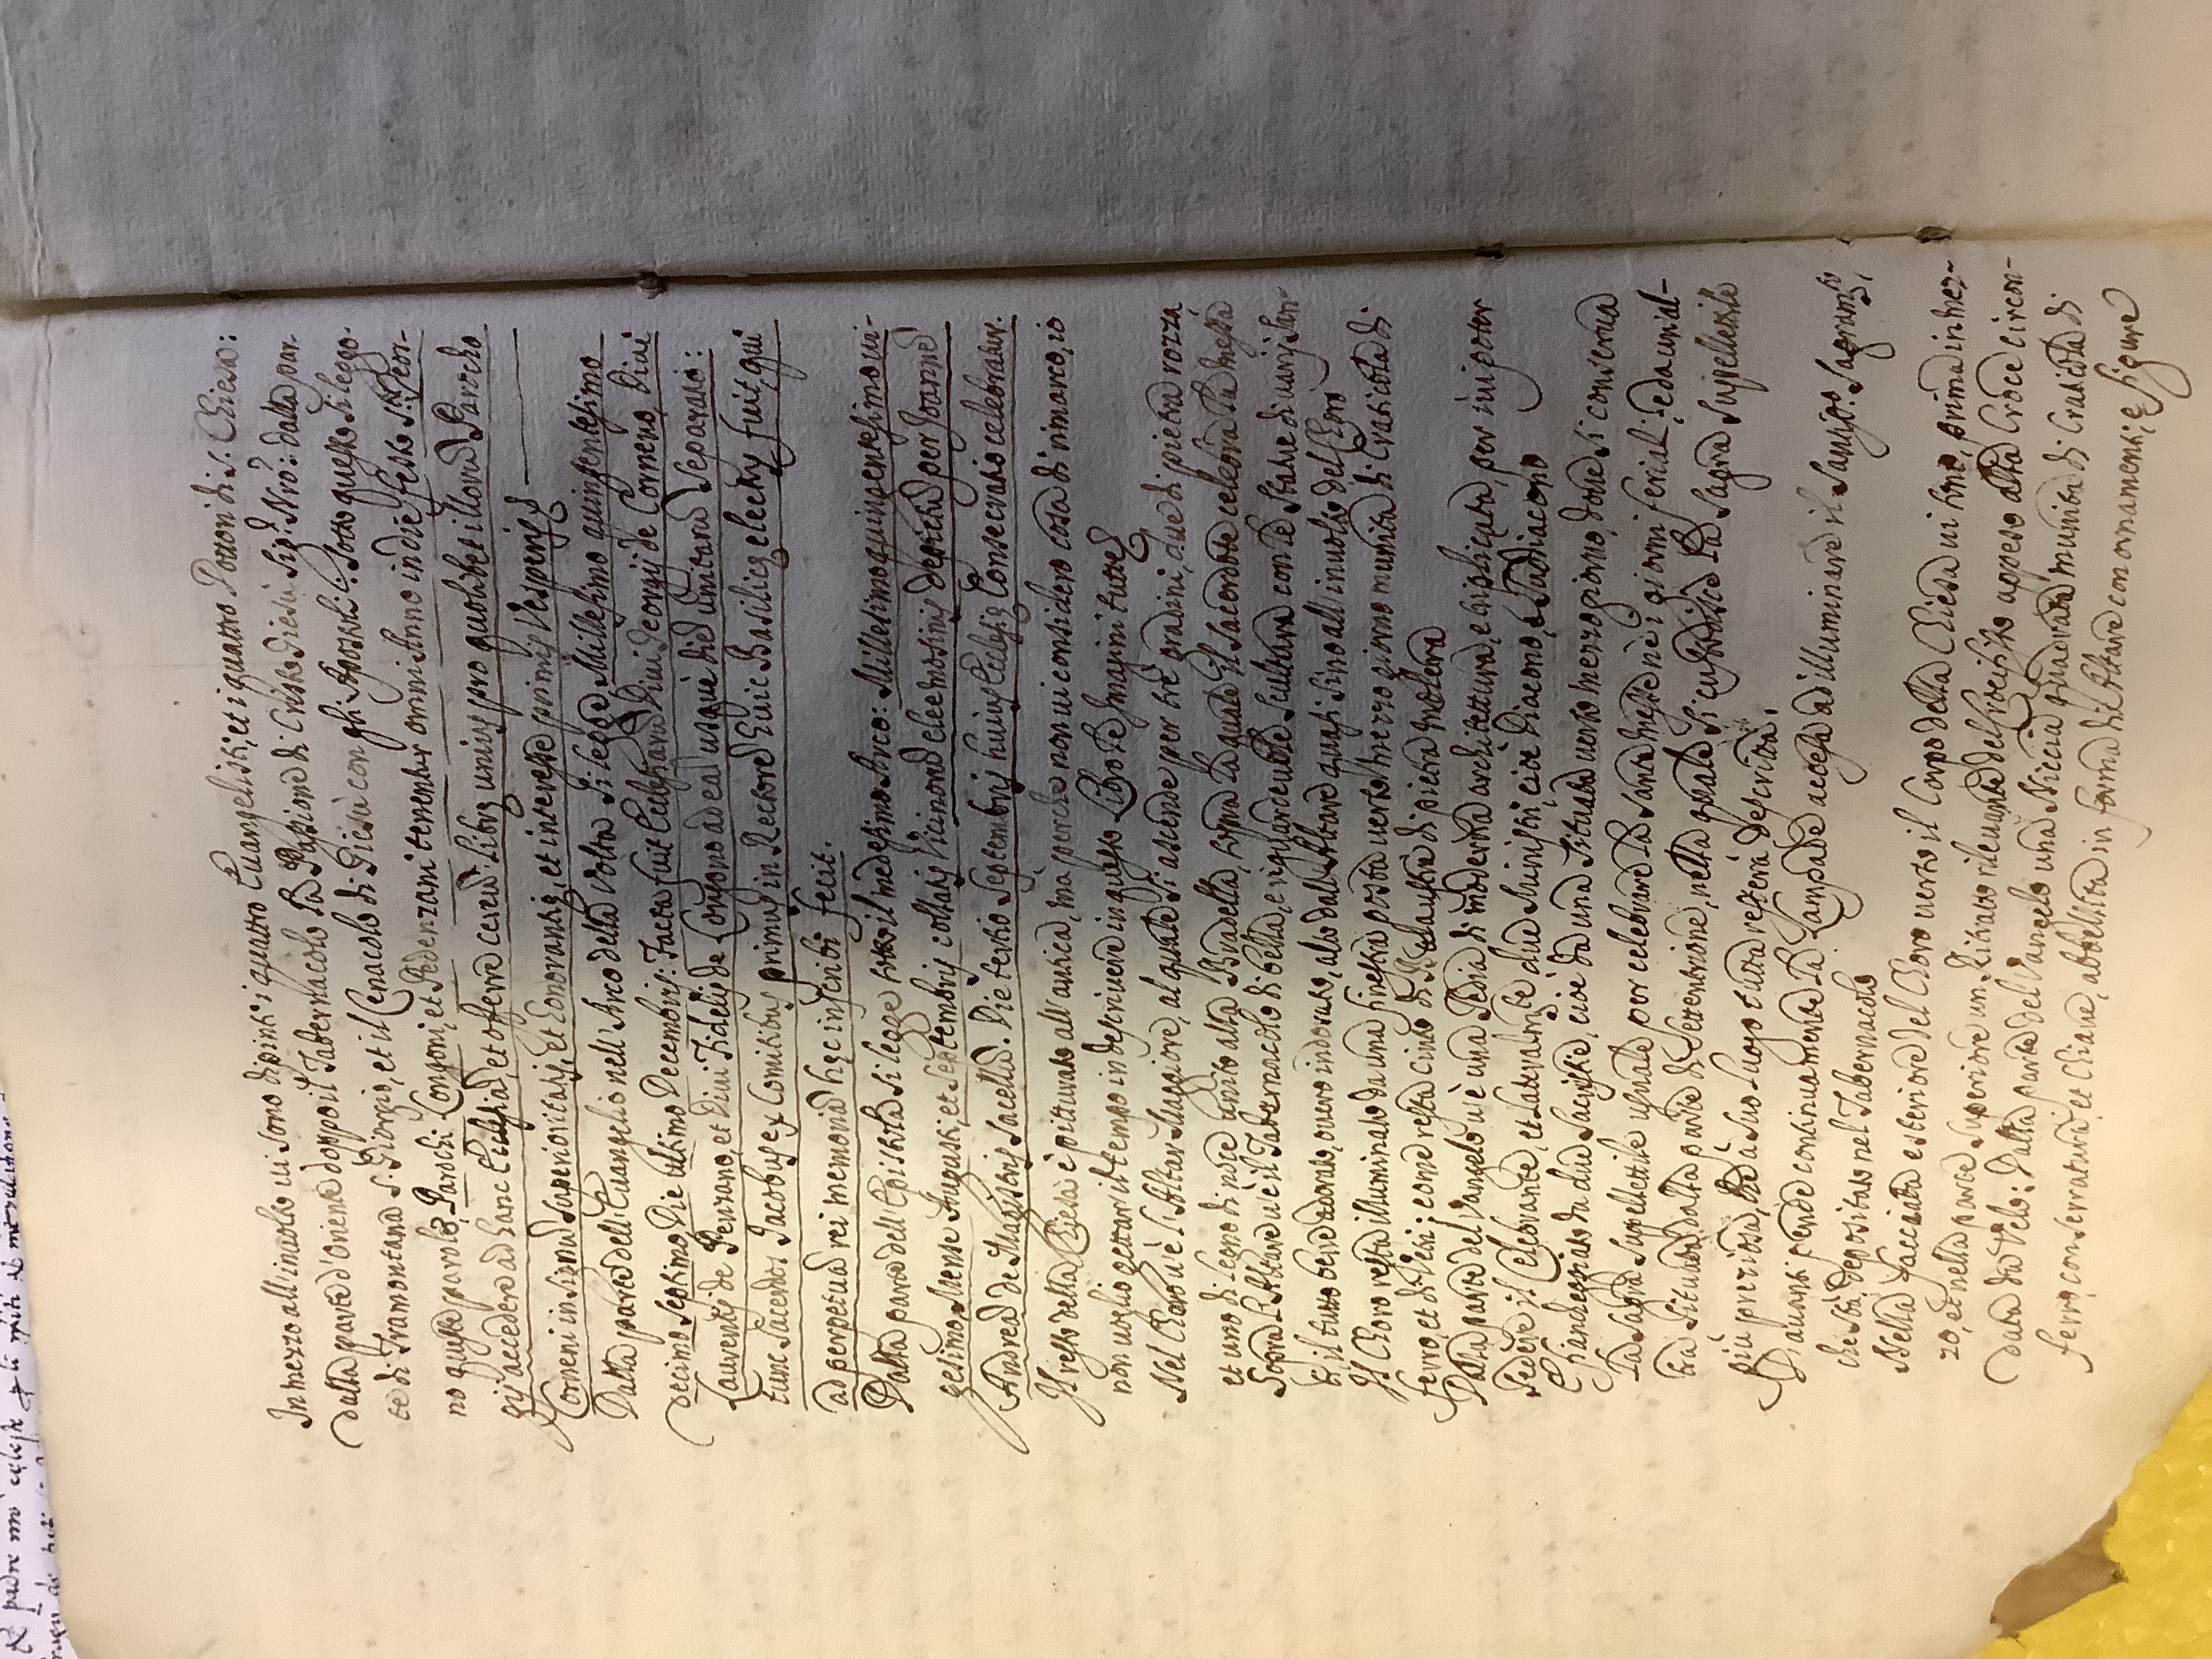 In mezzo all'imolto ui sono dipinti i quattro Euangelisti, et i quattro Dottori di S. Chiesa:
dalla parte d'Oriente doppo il Tabernacolo la Passione di Cristo di Giesù Sigr. Nro: dalla par-
te di Tramontana S. Giorgio, et il Cenacolo di Giesù con gli Apostoli: Sotto questo si leggo-
no queste parole. Parochi Congoni, et Pedenzani tenentur omni Anno in die Festo S. Geor-
gij accedere ad hanc Ecclesiam, et offerre cereum Libre unius pro quolibet illorum Parocho
Corneni in signum superioritatis, et honorantie, et interesse primis Vesperis
Dalla parte dell'Euangelio nell'Arco della Volta si legge. Millesimo quingentesimo
decimo septimo Die ultimo Decembris: Facta fuit Ecclesia Diui Georgij de Corneno, Diui
Laurentij de Penzano, et Diui Fidelis de Congono ad eam usque diem unitarum separatio:
tunc Sacerdos Jacobus ex Comitibus primus in Rectorem huic Basilice electus fuit, qui
ad perpetuam rei memoriam hec inscribi fecit.
Dalla parte dell'Epistola si legge sotto il medesimo Arco: Millesimo quingentesimo ui-
gesimo, Mense Augusti, et Septembris collatis Vicinorum eleemosinis depictum per Joannem
Andream de Magistris Sacellum. Die tertio Septembris huius Ecclesie Consecratio celebratur.
Il resto della Chiesa è pitturato all'antica, ma perche non ui considero cosa di rimarco, io
non uoglio gettar il tempo in descriuere in questo Libro le Imagini tutte
Nel Choro u'è l'Altar Maggiore, al quale si ascende per tre gradini, due di pietra rozza
et uno di legno di noce unito alla Bradella, sopra la quale il Sacerdote celebra la messa
Sopra l'Altare u'è il Tabernacolo di bella, e riguardeuole scultura con le Statue di uarij San-
ti, il tutto bene adorato, ouero indorato, alto dall'Altare quasi sino all'inuolto del Choro
Il Choro resta illuminato da una finestra posta uerso mezzo giorno munita di Craticola di
ferro, et di Vetri; come resta cinto di Balaustra di pietra molera
Dalla parte del Vangelo u'è una Sedia di moderna architettura, e bislicata, per iui poter
sedere il Celebrante, et lateralmte due Ministri, cioè Diacono, e Sudiacono
Fiancheggiato da due Sagristie, cioè da una situata uerso mezzo giorno, doue si conserua
la sagra Suppellettile usuale per celebrare la santa messa nè i giorni feriali: e da un'al-
tra situata dalla parte di Settentrione, nella quale si custodisce la sagra Suppellettile
più preziosa, che à suo luogo tutta resterà descritta.
D'auanti pende continuamente la Lampade accesa ad illuminare il Santiss. Sagramto,
che stà depositato nel Tabernacolo
Nella facciata esteriore del Choro uerso il Corpo della Chiesa ui sono, prima in mez-
zo, et nella parte superiore un Ritratto rileuante del Crocifisso appeso alla Croce circon-
data da Velo: Dalla parte del Vangelo una Niccia quadrata munita di Craticola di
ferro, con serratura, et Chiaue, abbellita in forma di Altare con ornamenti, e figure